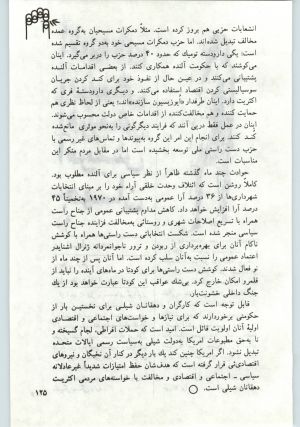 انشعابات حزبی هم بروز کرده است. مثلاً دمکرات مسیحیان بهگروه عمده
مخالف تبدیل شدهاند. اما حزب دمکرات مسیحی خود بهدو گروه تقسیم شده
بود: یکی داردوسته تومیك که حدود ۴۰ درصد حزب را دربر میگیرد. اینان
میکوشند که با حکومت آلنده همکاری کنند. از بعضی اقدامات آلنده
پشتیبانی میکنند و در عین حال از نفوذ خود برای کند کردن جریان
سوسیالیستی کردن اقتصاد استفاده میکنند. و دیگری داردوستهٔ فری که
اکثریت دارد. اینان طرفدار «اپوزیسیون سازندهاند»، یعنی از لحاظ نظری هم
حمایت کننده و هم مخالفتکننده از اقدامات خاص دولت محسوب میشوند.
اینان در عمل فقط درپی آنند که فرایند دیگرگونی را بهنحو موثری مانعشده
و کند کنند. برای انجام این امر این گروه بهپیوندها و تماسهای غیر رسمی با
حزب دست راستی ملی توسعه بخشیده است اما در مقابل مردم منکر این
مناسبات است.
حوادث چند ماه گذشته ظاهراً از نظر سیاسی برای آلنده مطلوب بود.
کاملاً روشن است که ائتلاف وحدت خلقی آراء خود را بر مبنای انتخابات
شهرداریها از ۳۶ درصد آرا عمومی بهدست آمده در ۱۹۷۰ بهتخمیناً ۴۵
درصد آرا افزایش خواهد داد. کاهش مداوم پشتیبانی عمومی از جناح راست
همراه با تسریع اصلاحات شهری و روستائی بهمخالفت فزاینده جناح راست
سیاسی منجر شده است. شکست انتخاباتی دست راستیها همراه با کوشش
ناکام آنان برای بهرهبرداری از ربودن و ترور ناجوانمردانه ژنرال اشنایدر
اعتماد عمومی را نسبت بهآنان سلب کرده است. اما آنان پس از چند ماه از
نو فعال شدند. کوشش دست راستیها برای کودتا در ماههای آینده را نباید از
قلمرو امکان خارج کرد. بیشك عواقب این کودتا عبارت خواهد بود از یك
جنگ داخلی خشونتبار.
قابل توجه است که کارگران و دهقانان شیلی برای نخستین بار از
حکومتی برخوردارند که برای نیازها و خواستهای اجتماعی و اقتصادی
اولیهٔ آنان اولویت قائل است. امید است که حملات افراطی، لجام گسیخته و
نا بهحق مطبوعات امریکا بهدولت شیلی بهسیاست رسمی ایالات متحده
تبدیل نشود. اگر امریکا چنین کند یك بار دیگر در کنار آن نخبگان و نیروهای
اقتصادیئی قرار گرفته است که هدفشان حفظ امتیازات شدیداً غیرعادلانه
سیاسی ـ اجتماعی و اقتصادی و مخالفت با خواستههای مردمی اکثریت
دهقانان شیلی است.
۱۲۵